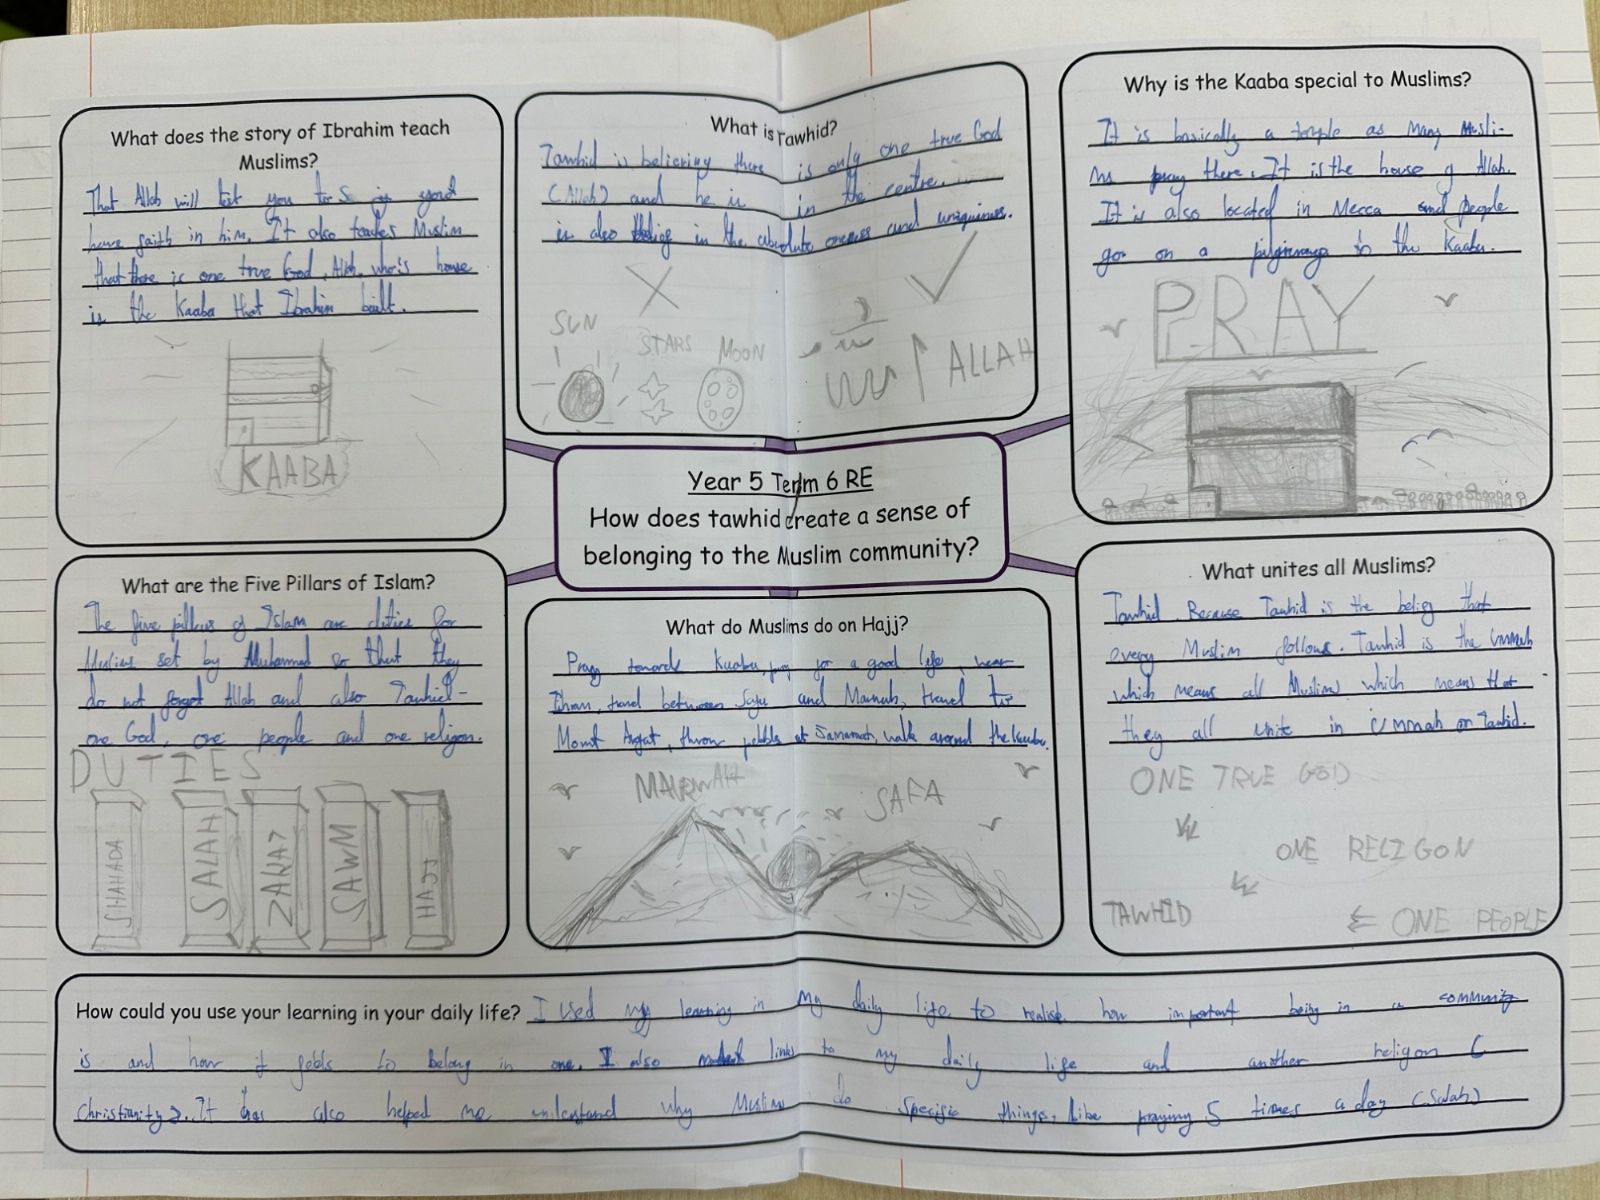 What does the story of Ibrahim teach
Muslims?
That Allah will test you to see if you
have faith in him. It also teaches Muslim
that there is one true God, Allah, who's house
is the Kaaba that Ibrahim built.
KAABA
What is Tawhid?
Tawhid is believing there is only one true God
(Allah) and he is in the centre.
is also in the absolute oneness and uniquness.
SUN
STARS
MOON
ALLAH
Why is the Kaaba special to Muslims?
It is basically a temple as many Musli-
ms pray there. It is the house of Allah.
It is also located in Mecca and people
go on a pilgrimage to the Kaaba.
PRAY
Year 5 Term 6 RE
How does tawhid create a sense of
belonging to the Muslim community?
What are the Five Pillars of Islam?
The five pillars of Islam are duties for
Muslims set by Muhammad so that they
do not forget Allah and also Tawhid -
one God, one people and one religon.
DUTIES
SHAHADA
SALAH
ZAKAT
SAWM
HAJJ
What do Muslims do on Hajj?
Pray towards Kaaba, pray for a good life, wear
Ihram, travel between Safa and Marwah, travel to
Mount Arafat, throw pebbles at Jamarat, walk around the Kaaba.
MARWAH
SAFA
What unites all Muslims?
Tawhid. Because Tawhid is the belief that
every Muslim follows. Tawhid is the Ummah
which means all Muslims which means that
they all unite in Ummah on Tawhid.
ONE TRUE GOD
ONE RELIGON
TAWHID
ONE PEOPLE
How could you use your learning in your daily life? I used my learning in my daily life to realise how important being in a community
is and how it feels to belong in one. I also links to my daily life and another religon (
Christianity). It has also helped me understand why Muslims do specific things, like praying 5 times a day (Salah)